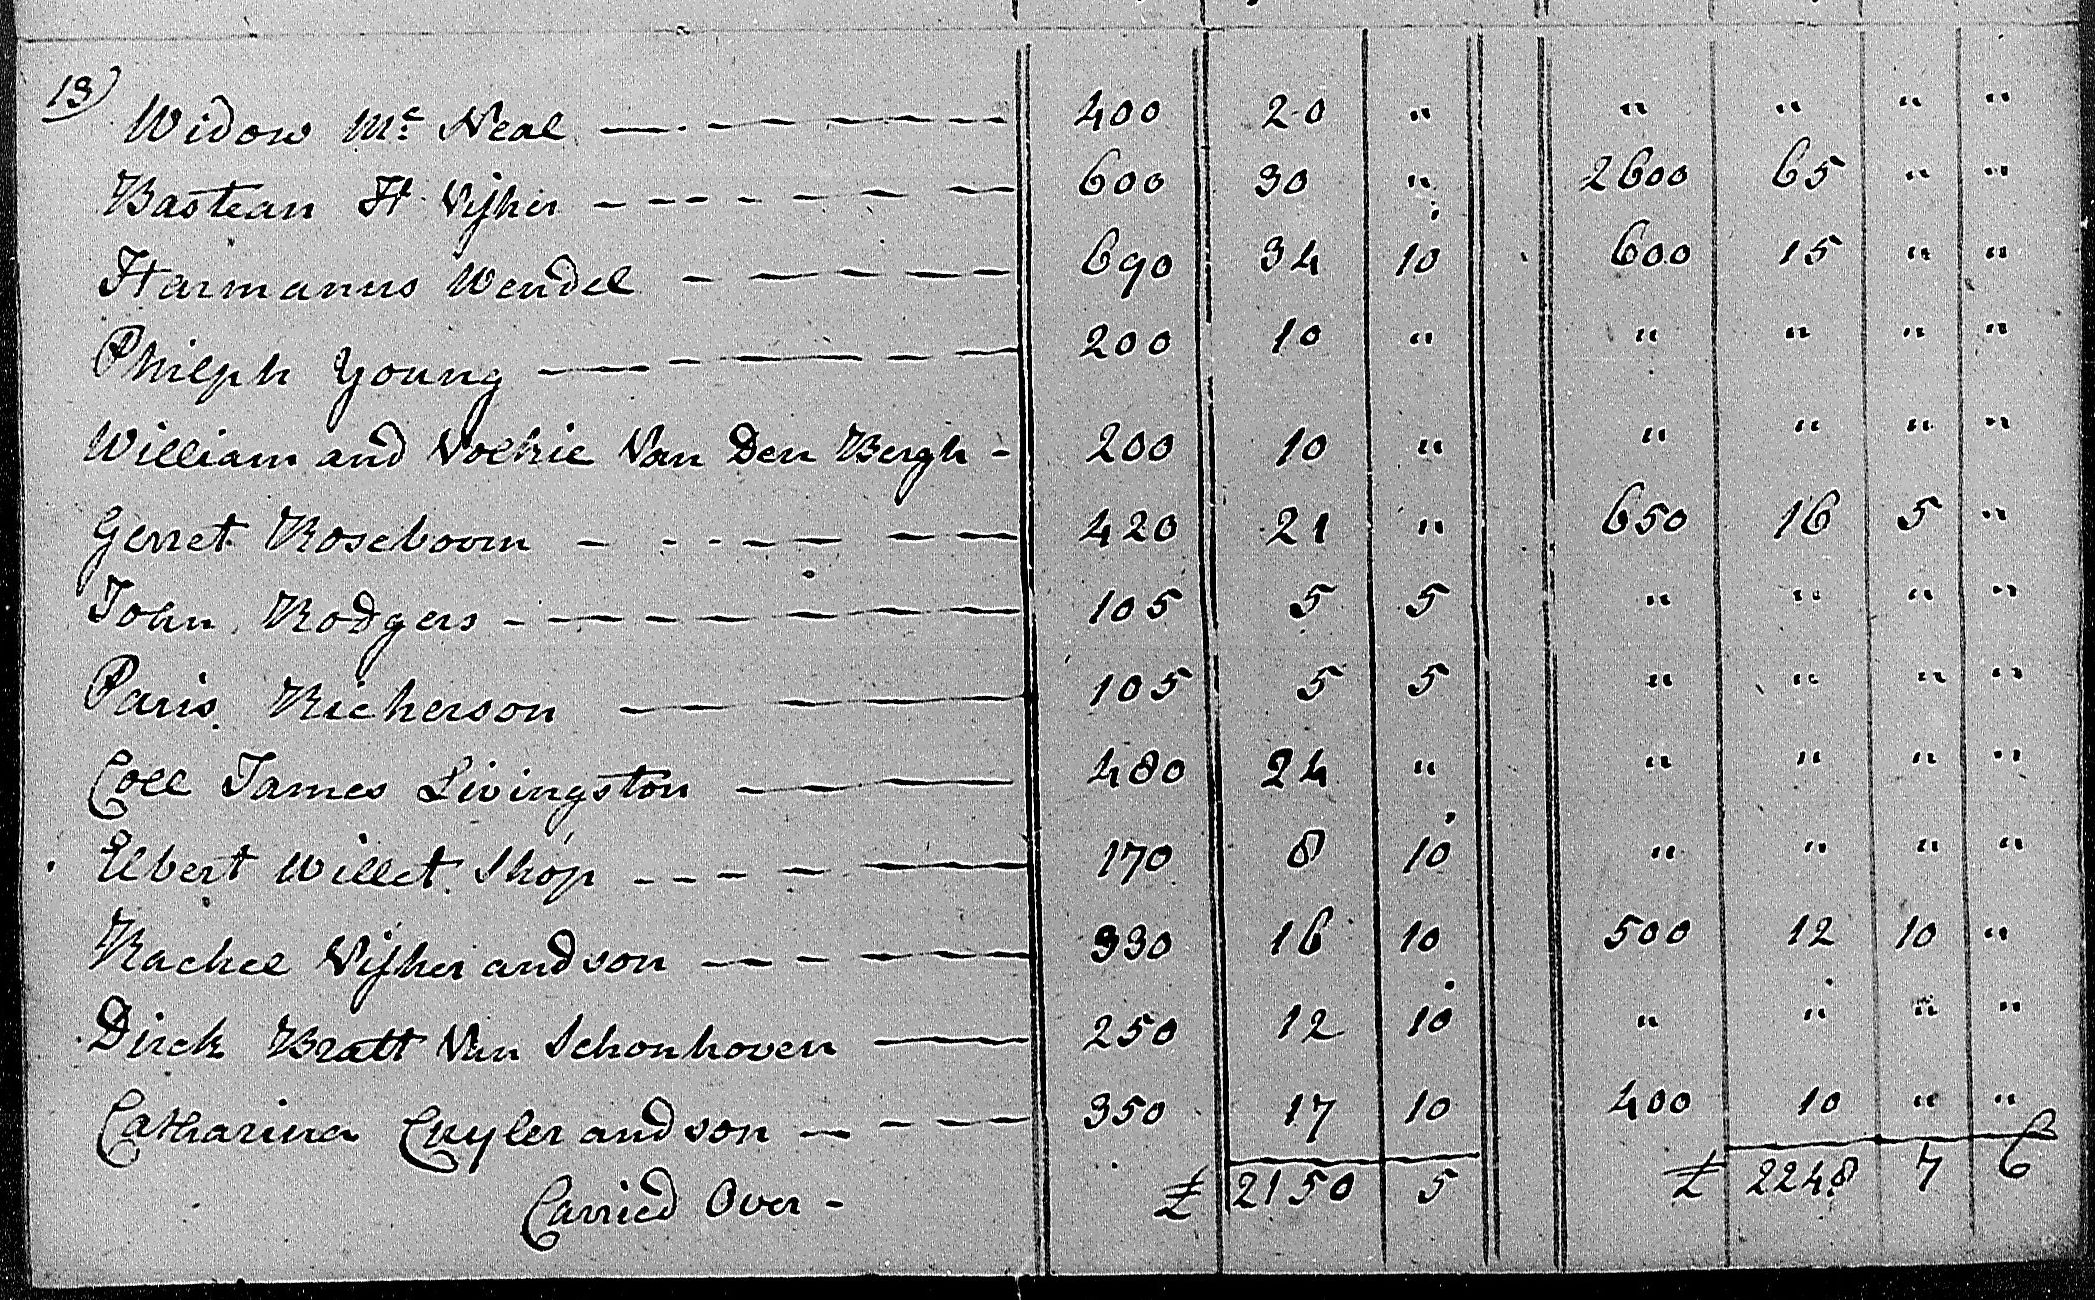 13)
Widow Mc Neal 400 20 " " " " "
Bastean H Visher 600 30 " 2600 65 " "
Harmanus Wendel 690 34 10 600 15 " "
Philiph Young 200 10 " " " " "
William and Volkie Van Den Bergh - 200 10 " " " " "
Gerret Roseboom 420 21 " 650 16 5 "
John Rodgers 105 5 5 " " " "
Paris Richerson 105 5 5 " " " "
Coll James Livingston 480 24 " " " " "
Elbert Willet Shop 170 8 10 " " " "
Rachel Visher and son 330 16 10 500 12 10 "
Dirck Bratt Van Schonhoven 250 12 10 " " " "
Catharina Cuyler and son 350 17 10 400 10 " "
Carried Over - £ 2150 5 £ 2248 7 6